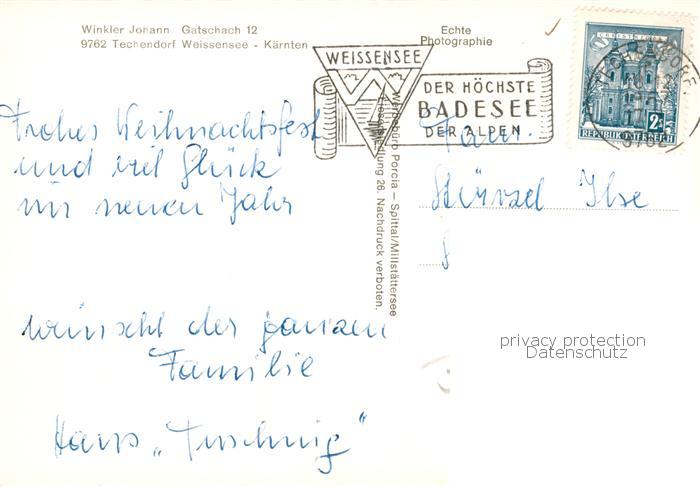 Winkler Johann Gatschach 12
9762 Techendorf Weissensee - Kärnten
Echte
Photographie
WEISSENSEE
DER HÖCHSTE
BADESEE
DER ALPEN
2S
REPUBLIK ÖSTERREICH
Frohes Weihnachtsfest
und viel Glück
im neuen Jahr
wünscht der ganzen
Familie
Haus "
Werbebüro Porcia – Spittal/Millstättersee
siedlung 26. Nachdruck verboten.
Fam.
Stürzel Ilse
privacy protection
Datenschutz